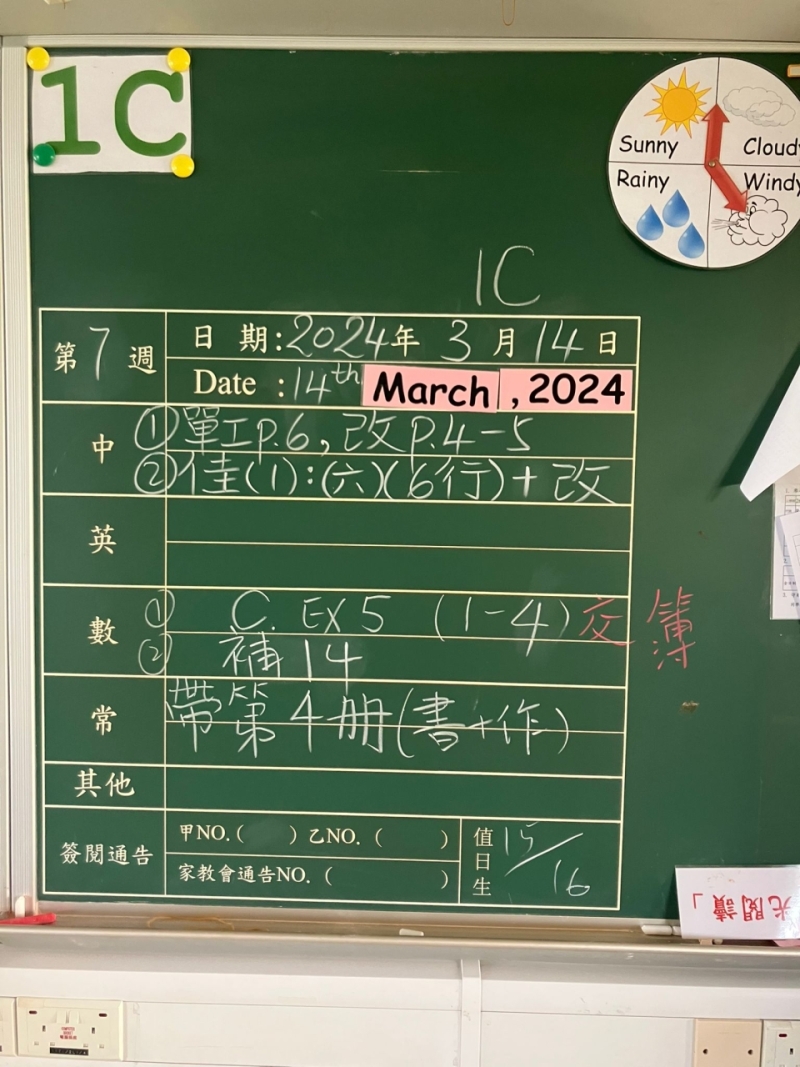 1C
Sunny
Cloudy
Rainy
Windy
1C
第7週
日期:2024年3月14日
Date :14th March, 2024
中
①單工P.6,改P.4-5
②佳(1):(六)(6行)+改
英
數
① C. EX5 (1-4)交簿
② 補14
常
帶第4册(書+作)
其他
簽閱通告
甲NO.( )乙NO.( )
家教會通告NO.( )
值日生
15/16
光閱讀」